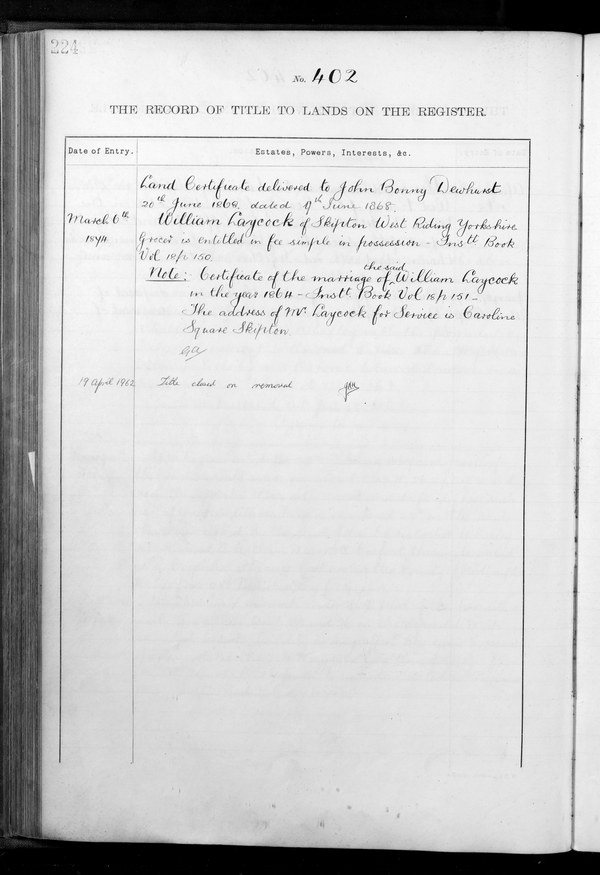 224
No. 402
THE RECORD OF TITLE TO LANDS ON THE REGISTER.
Date of Entry. Estates, Powers, Interests, &c.
Land Certificate delivered to John Bonny Dewhurst
20th June 1868. dated 9th June 1868.
March 6th William Laycock of Skipton West Riding Yorkshire
1874 Grocer is entitled in fee simple in possession - Instt Book
Vol 18/p 150.
Note: Certificate of the marriage of the said William Laycock
in the year 1864 - Instt. Book Vol 18/p 151 -
The address of Mr. Laycock for Service is Caroline
Square Skipton.
19 April 1962 Title closed on removal